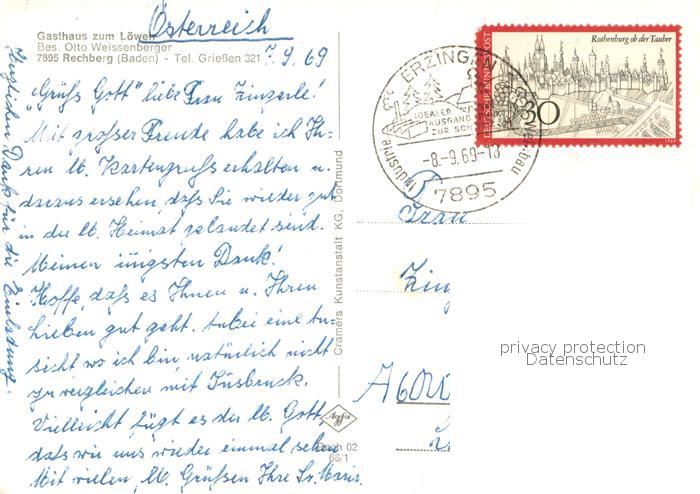 Österreich
Gasthaus zum Löwen
Bes. Otto Weissenberger
7895 Rechberg (Baden) - Tel. Grießen 321
7.9.69
„Grüß Gott" liebe Frau Zingerle!
Mit großer Freude habe ich Ih-
ren lb. Kartengruß erhalten u.
daraus ersehen, daß Sie wieder gut
in der lb. Heimat gelandet sind.
Meinen innigsten Dank!
Hoffe, daß es Ihnen u. Ihren
Lieben gut geht. Anbei eine An-
sicht wo ich bin, natürlich nicht
zu vergleichen mit Insbruck.
Vielleicht fügt es der lb. Gott,
daß wir uns wieder einmal sehen
Mit vielen, lb. Grüßen Ihre Sr. Maria
Herzlichen Dank für die Einladung.
Cramers Kunstanstalt KG. Dortmund
Agfa
02
66/1
Rothenburg ob der Tauber
DEUTSCHE BUNDESPOST
30
ERZINGEN
IDEALER
AUSGANG
ZUR
-8.-9.69-13
Industrie
7895
Frau
Zing
A 6020
privacy protection
Datenschutz